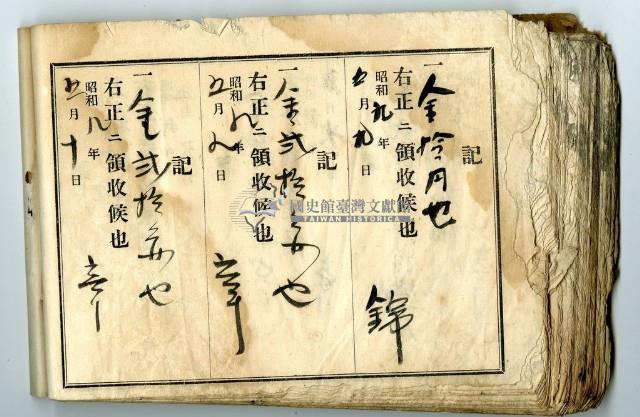 記
一金拾円也
右正ニ領收候也
昭和九年
五月九日
錦
記
一金弐拾円也
右正ニ領收候也
昭和九年
五月九日
章
記
一金弐拾円也
右正ニ領收候也
昭和九年
五月十日
章
國史館臺灣文獻館
TAIWAN HISTORICA